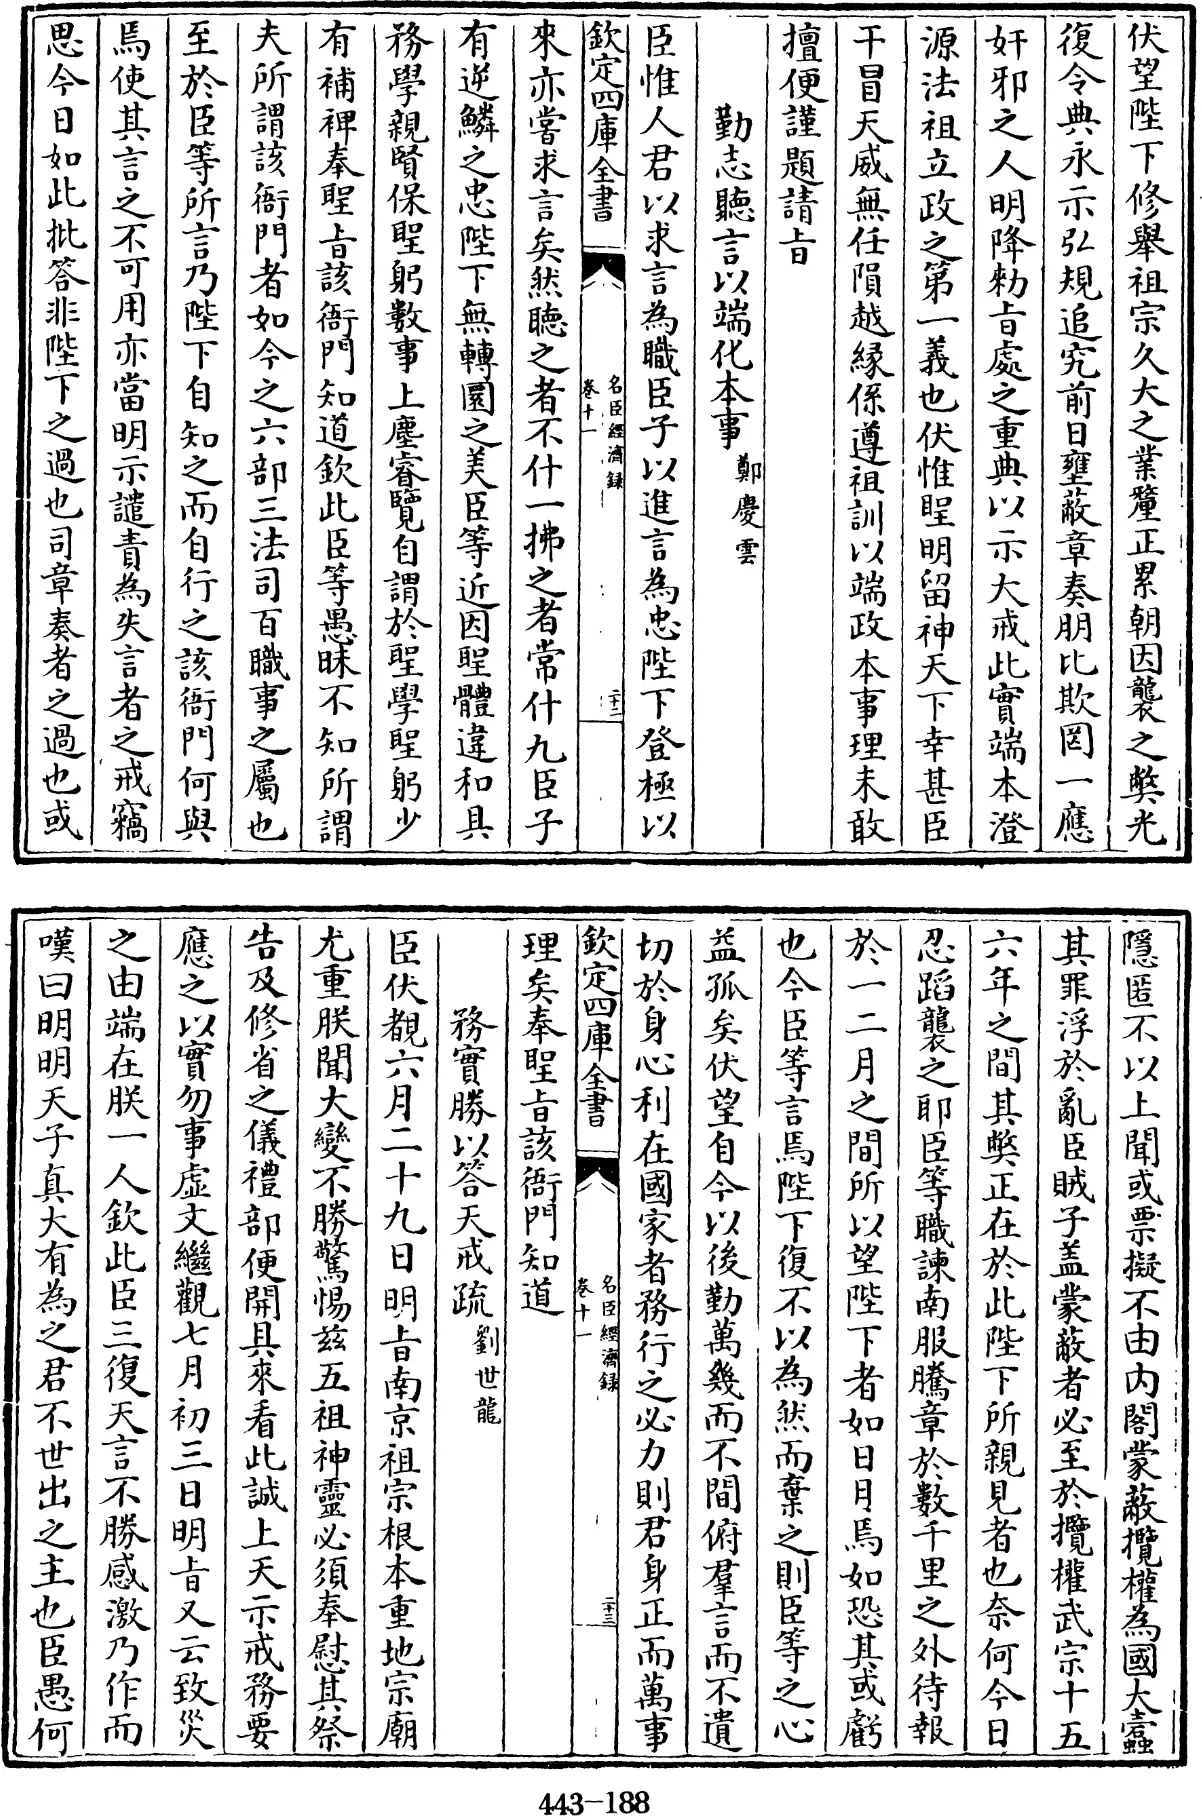 伏望陛下修舉祖宗久大之業釐正累朝因襲之弊光
復令典永示弘規追究前日壅蔽章奏朋比欺罔一應
奸邪之人明降勑旨處之重典以示大戒此實端本澄
源法祖立政之第一義也伏惟聖明留神天下幸甚臣
干冒天威無任隕越緣係遵祖訓以端政本事理未敢
擅便謹題請旨
勤志聽言以端化本事 鄭慶雲
臣惟人君以求言為職臣子以進言為忠陛下登極以
欽定四庫全書 名臣經濟録 卷十一 二十二
來亦嘗求言矣然聽之者不什一拂之者常什九臣子
有逆鱗之忠陛下無轉圜之美臣等近因聖體違和具
務學親賢保聖躬數事上塵睿覽自謂於聖學聖躬少
有補裨奉聖旨該衙門知道欽此臣等愚昧不知所謂
夫所謂該衙門者如今之六部三法司百職事之屬也
至於臣等所言乃陛下自知之而自行之該衙門何與
焉使其言之不可用亦當明示譴責為失言者之戒竊
思今日如此批答非陛下之過也司章奏者之過也或
隱匿不以上聞或票擬不由内閣蒙蔽攬權為國大蠧
其罪浮於亂臣賊子盖蒙蔽者必至於攬權武宗十五
六年之間其弊正在於此陛下所親見者也奈何今日
忍蹈襲之耶臣等職諫南服騰章於數千里之外待報
於一二月之間所以望陛下者如日月焉如恐其或虧
也今臣等言焉陛下復不以為然而棄之則臣等之心
益孤矣伏望自今以後勤萬幾而不間俯羣言而不遺
切於身心利在國家者務行之必力則君身正而萬事
欽定四庫全書 名臣經濟録 卷十一 二十三
理矣奉聖旨該衙門知道
務實勝以答天戒疏 劉世龍
臣伏覩六月二十九日明旨南京祖宗根本重地宗廟
尤重朕聞大變不勝驚惕兹五祖神靈必須奉慰其祭
告及修省之儀禮部便開具來看此誠上天示戒務要
應之以實勿事虛文繼觀七月初三日明旨又云致災
之由端在朕一人欽此臣三復天言不勝感激乃作而
嘆曰明明天子真大有為之君不世出之主也臣愚何
443-188